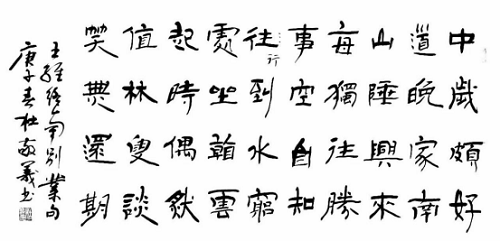 中歲頗好
道晚家南
山陲興來
每獨往勝
事空自知
往到水窮
行
處坐看雲
起時偶然
值林叟談
笑無還期
王維終南別業句
庚子春杜敬義书